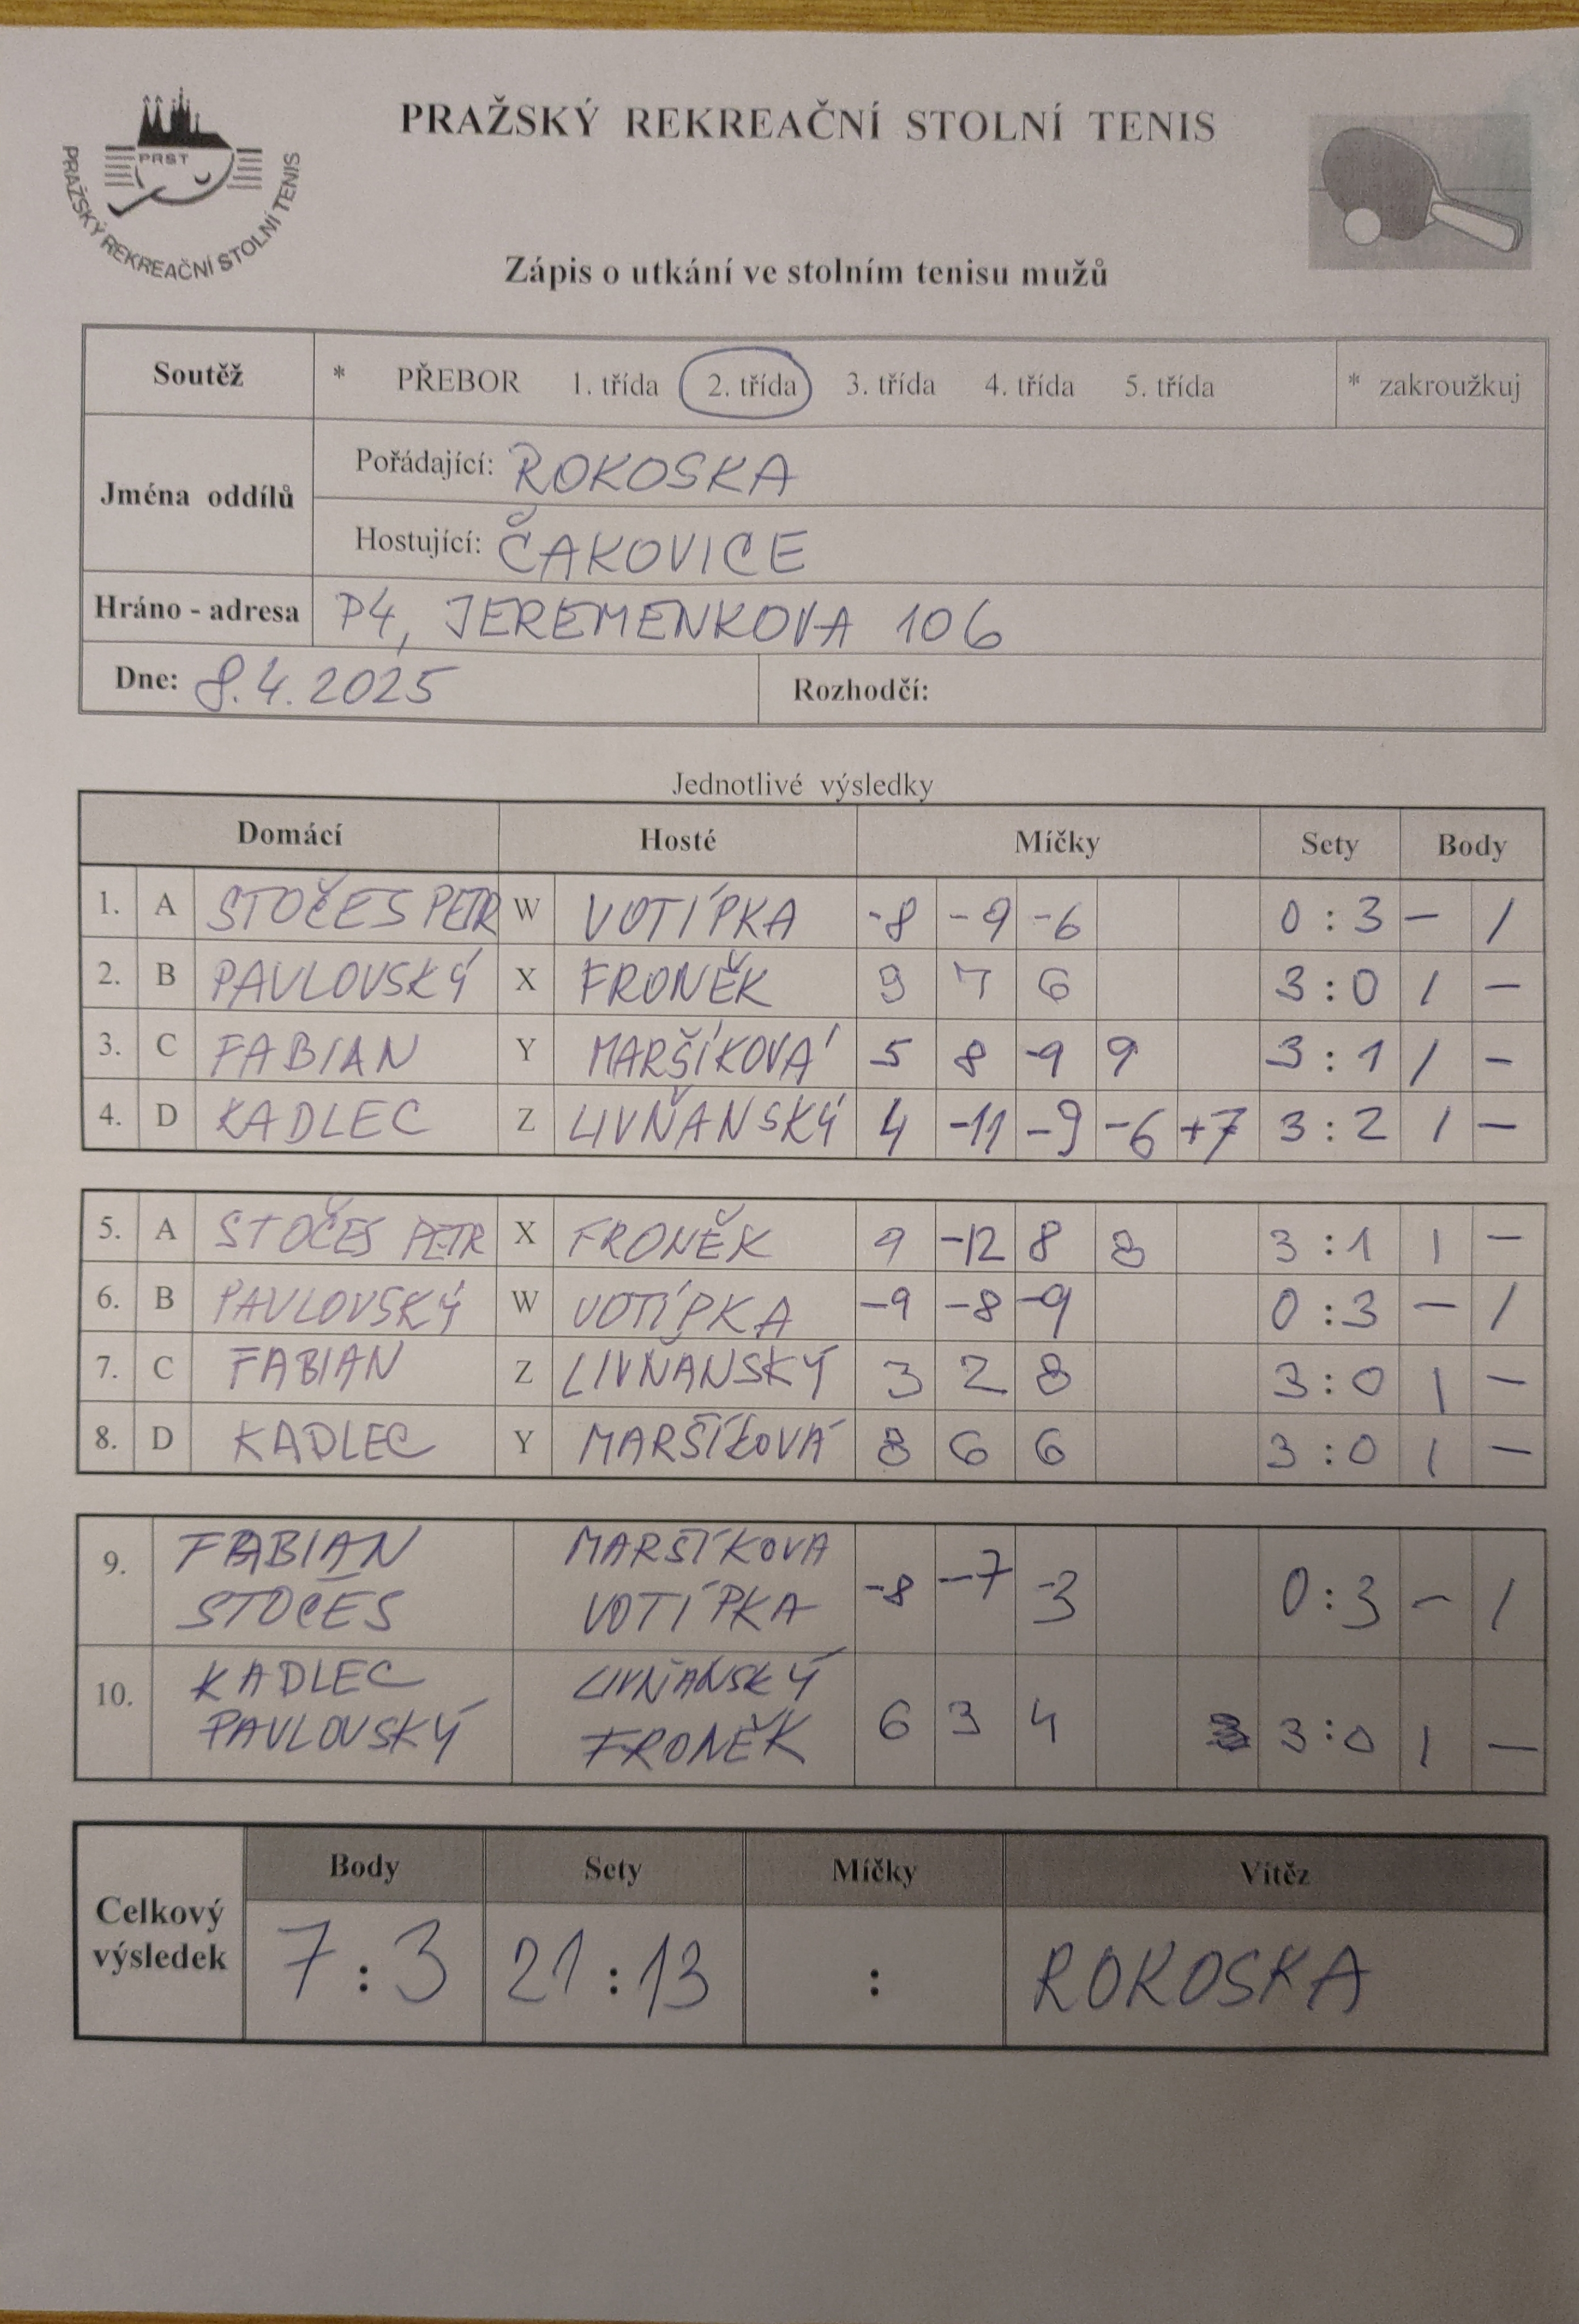 PRAŽSKÝ REKREAČNÍ STOLNÍ TENIS
PRST
PRAŽSKÝ REKREAČNÍ STOLNÍ TENIS
Zápis o utkání ve stolním tenisu mužů
Soutěž * PŘEBOR 1. třída 2. třída 3. třída 4. třída 5. třída * zakroužkuj
Jména oddílů
Pořádající: ROKOSKA
Hostující: ČAKOVICE
Hráno - adresa P4, JEREMENKOVA 106
Dne: 8.4.2025 Rozhodčí:
Jednotlivé výsledky
Domácí Hosté Míčky Sety Body
1. A STOČES PETR W VOTÍPKA -8 -9 -6 0 : 3 - 1
2. B PAVLOVSKÝ X FRONĚK 9 7 6 3 : 0 1 -
3. C FABIAN Y MARŠÍKOVÁ 5 8 -9 9 3 : 1 1 -
4. D KADLEC Z LIVŇANSKÝ 4 -11 -9 -6 +7 3 : 2 1 -
5. A STOČES PETR X FRONĚK 9 -12 8 8 3 : 1 1 -
6. B PAVLOVSKÝ W VOTÍPKA -9 -8 -9 0 : 3 - 1
7. C FABIAN Z LIVŇANSKÝ 3 2 8 3 : 0 1 -
8. D KADLEC Y MARŠÍKOVÁ 8 6 6 3 : 0 1 -
9. FABIAN MARŠÍKOVÁ
STOČES VOTÍPKA -8 -7 -3 0 : 3 - 1
10. KADLEC LIVŇANSKÝ
PAVLOVSKÝ FRONĚK 6 3 4 3 : 0 1 -
Celkový výsledek
Body Sety Míčky Vítěz
7 : 3 21 : 13 : ROKOSKA